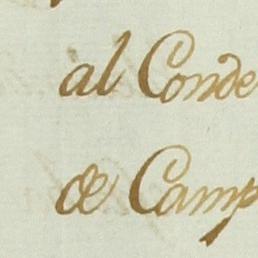 al Conde
de Camp